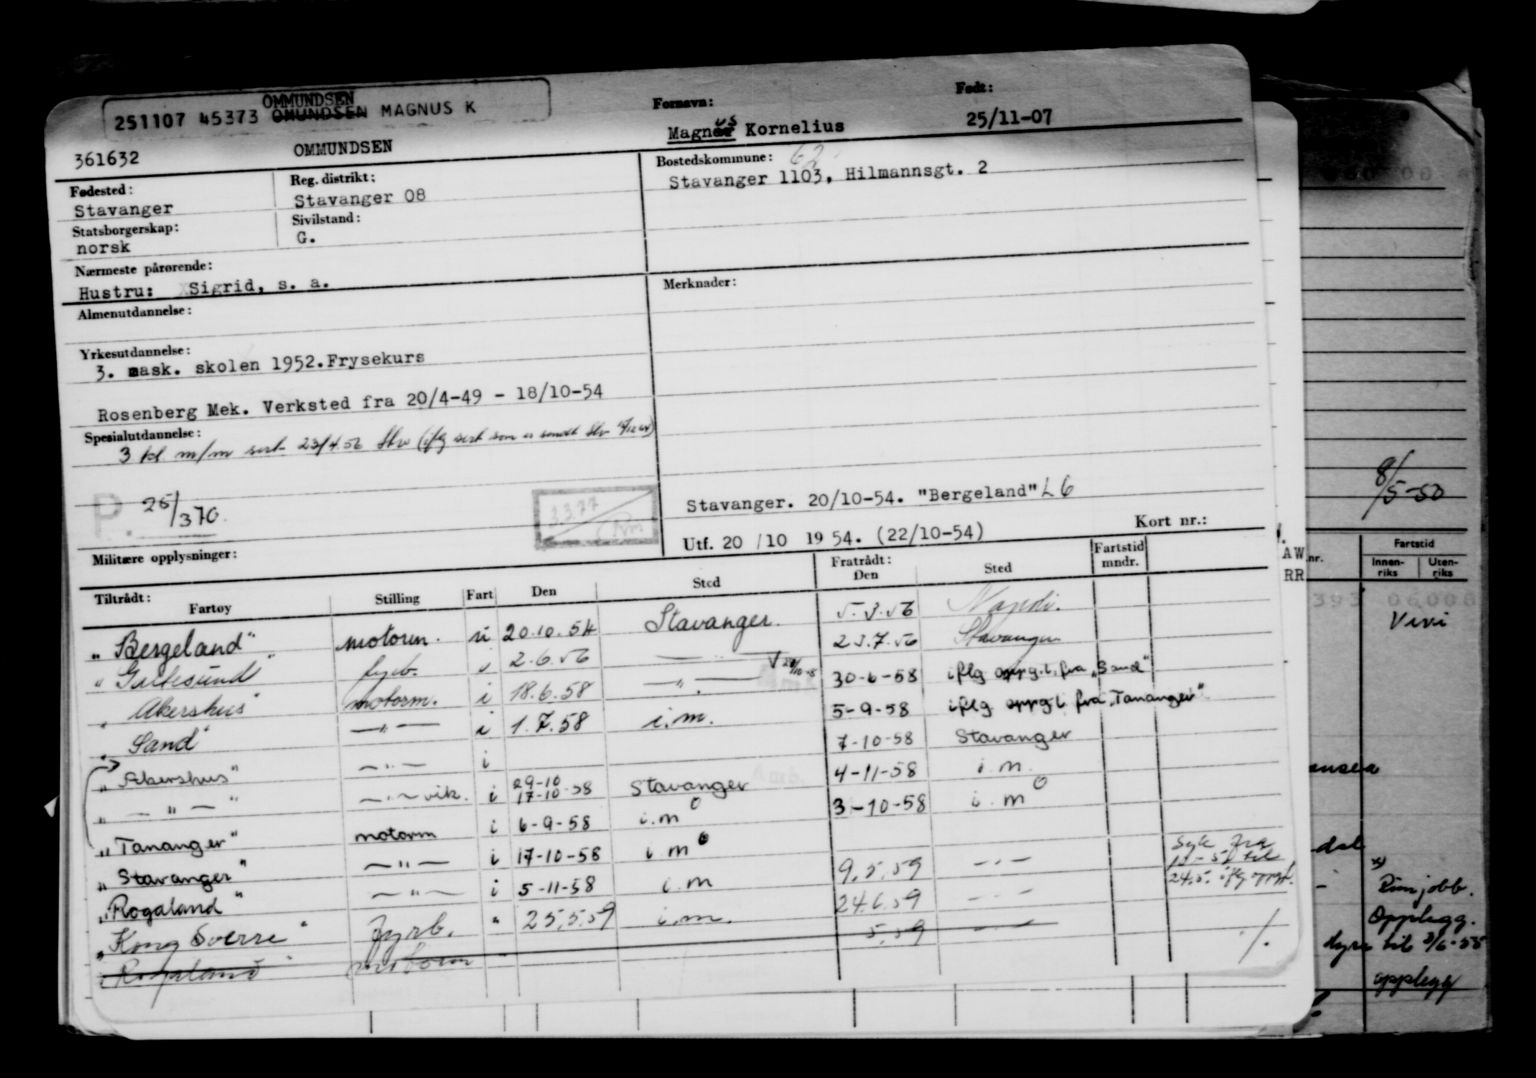 OMMUNDSEN
251107 45373 OMUNDSEN MAGNUS K
Fornavn: Født:
361632 OMMUNDSEN Magnus Kornelius 25/11-07
Fødested: Reg. distrikt: Bostedskommune: 62
Stavanger Stavanger 08 Stavanger 1103, Hilmannsgt. 2
Statsborgerskap: Sivilstand:
norsk G.
Nærmeste pårørende:
Hustru: Sigrid, s. a. Merknader:
Almenutdannelse:
Yrkesutdannelse:
3. mask. skolen 1952. Frysekurs
Rosenberg Mek. Verksted fra 20/4-49 - 18/10-54
Spesialutdannelse:
3 kl m/m sert. 23/4.56
P. 25/370. 3377 Stavanger. 20/10-54. "Bergeland" L 6
Militære opplysninger: Utf. 20/10 1954. (22/10-54) Kort nr.:
Tiltrådt: Fratrådt: Fartstid
Fartøy Stilling Fart Den Sted Den Sted mndr.
"Bergeland" motorm. 20.10.54 Stavanger. 5.3.56
fyrb. 2.6.56 — 23.7.56 Stavanger
"Akershus" motorm. i 18.6.58 — " — 30-6-58 iflg oppg.b. fra "Sand"
"Sand" — " — i 1.7.58 i.m. 5-9-58 iflg oppg.b. fra "Tananger"
"Akershus" — " — i 7-10-58 Stavanger
— " — — " — vik. i 29-10 17-10-58 Stavanger 4-11-58 i.m.
"Tananger" motorm i 6-9-58 i.m 3-10-58 i.m
"Stavanger" — " — i 17-10-58 i.m
"Rogaland" — " — i 5-11-58 i.m 9.5.59 — " — Syk fra
"Kong Sverre" Fyrb. " 25.5.59 i.m. 24.6.59 — " —
"Rogaland" motorm 5.59 — " — ./.
8/5-50
AW nr. Fartstid
RR Innen-riks Uten-riks
Vivi
Rimjobb.
Opplegg.
til 3/6-55
opplegg